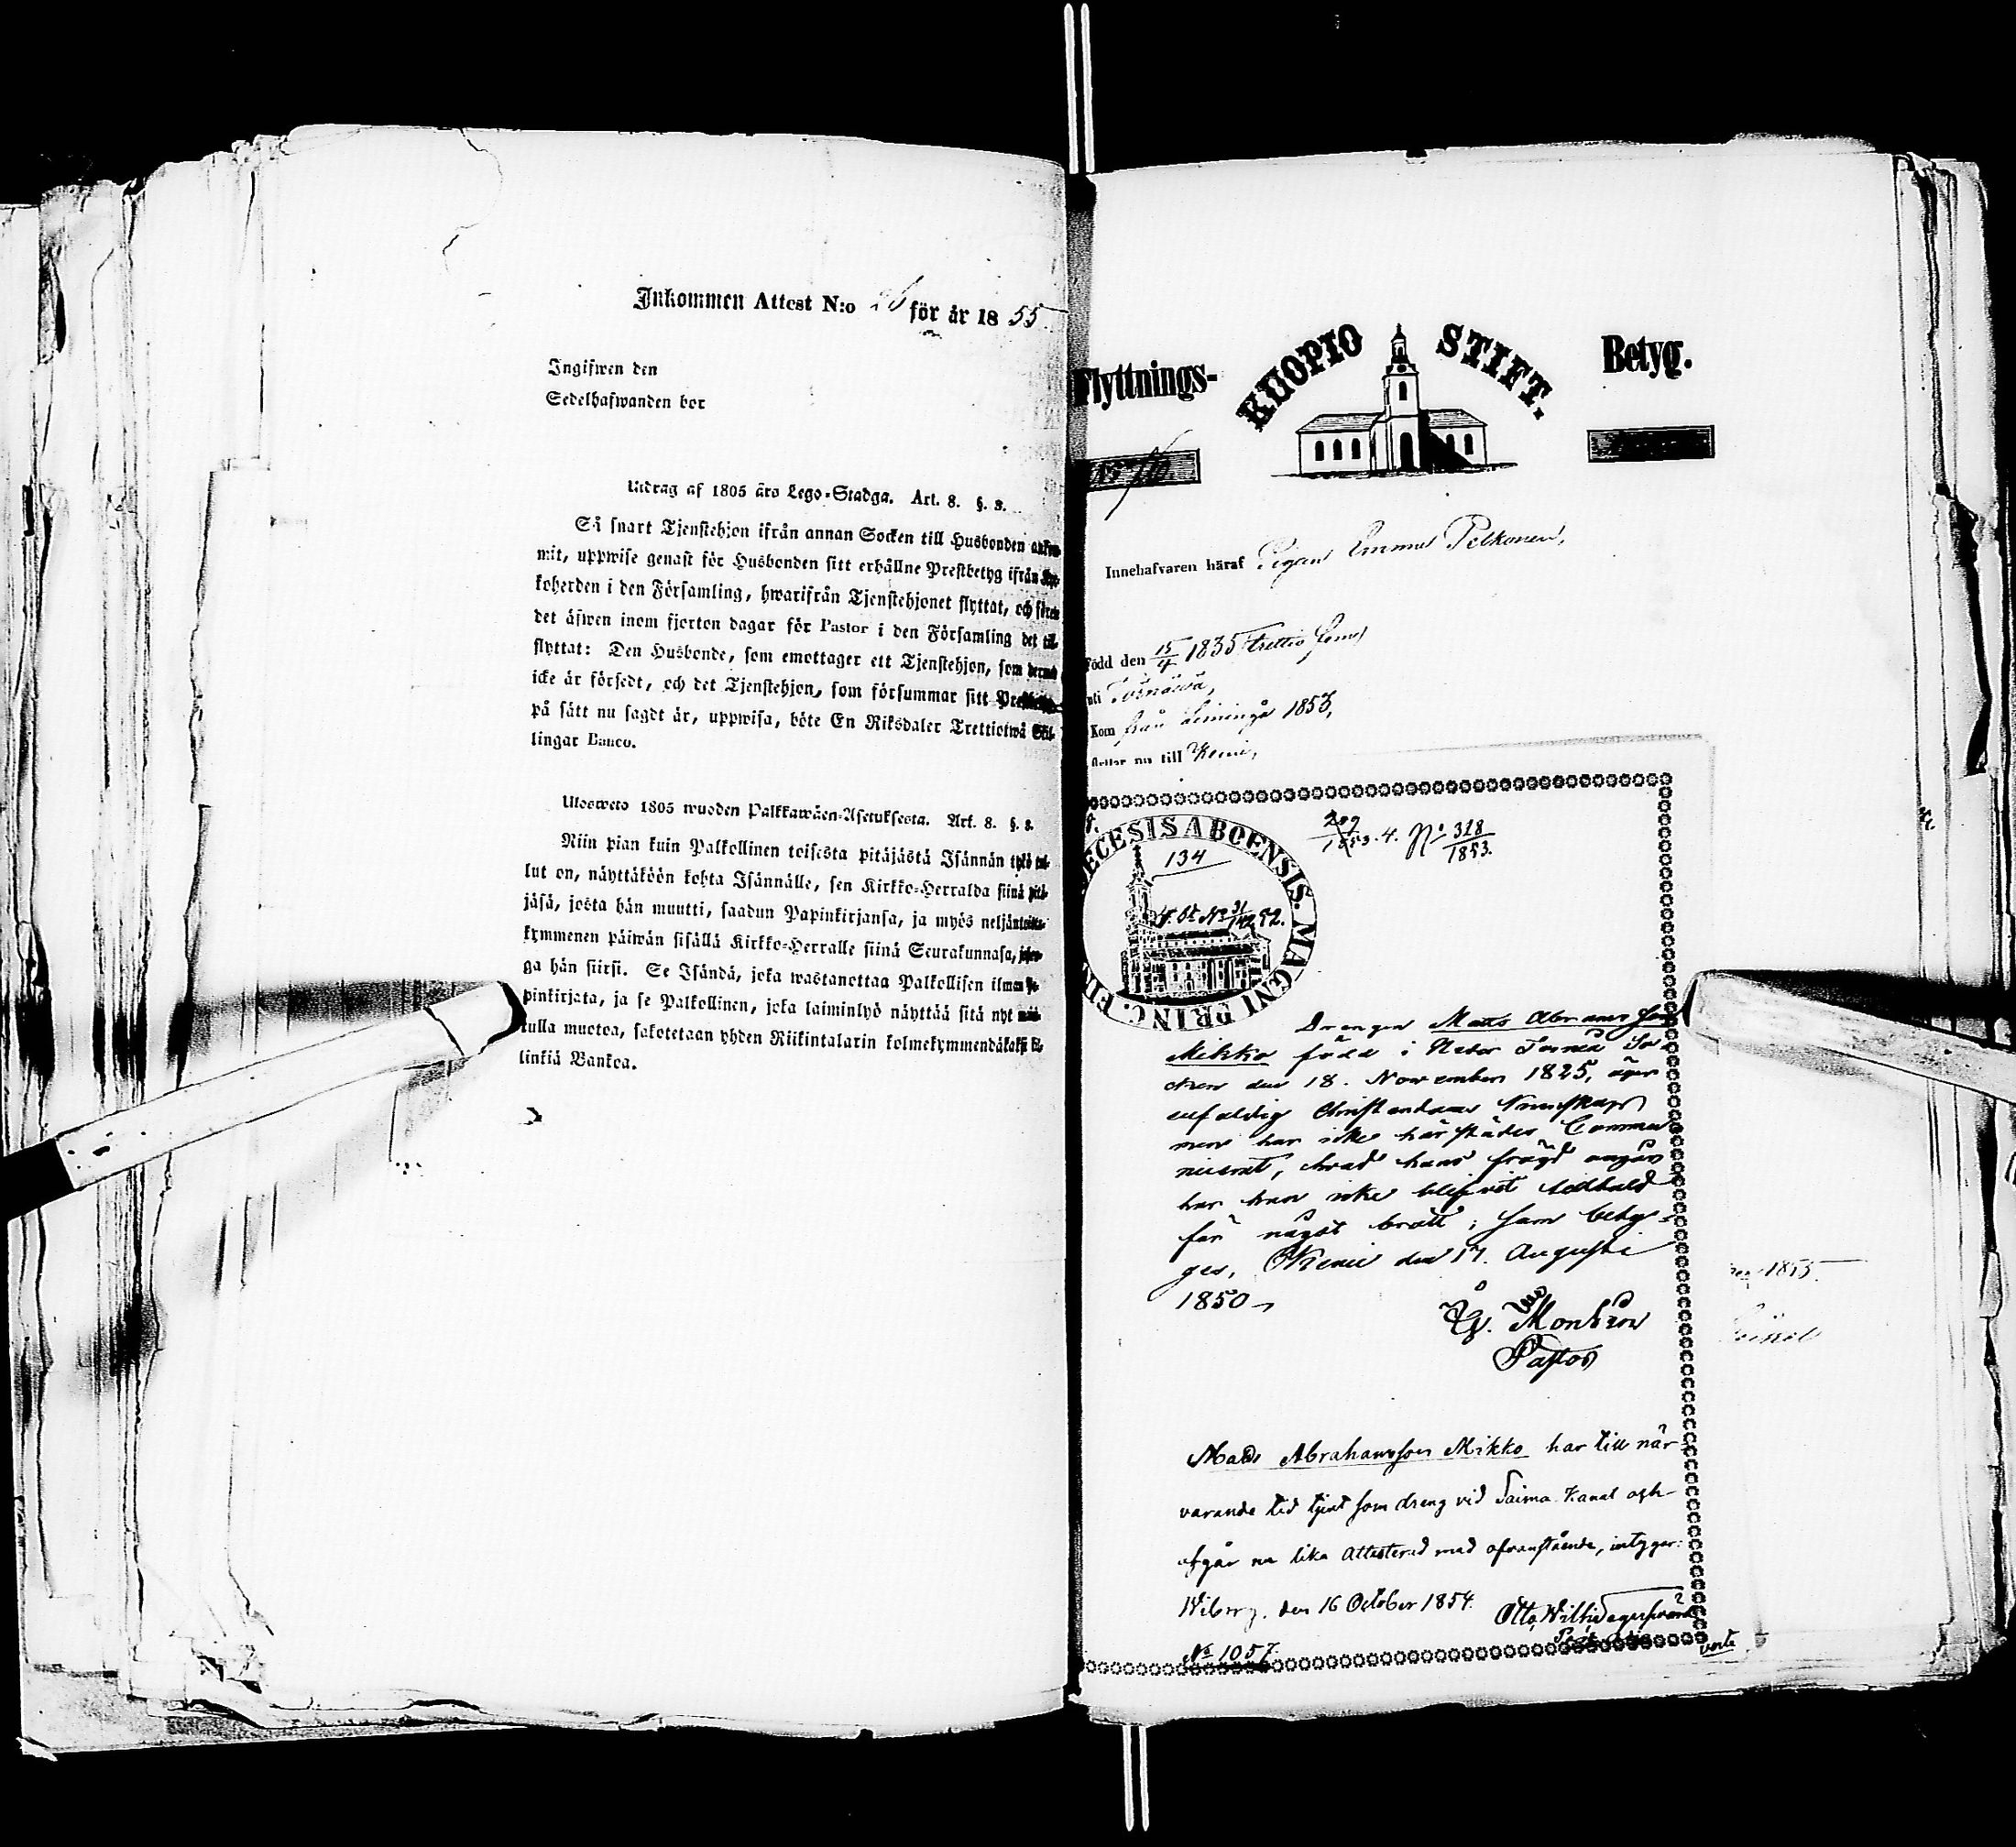 Inkommen Attest N:o 26 för år 1855
Ingifwen den
Sedelhafwanden bor
Utdrag af 1805 års Lego-Stadga. Art. 8. §. 8.
Så snart Tjenstehjon ifrån annan Socken till Husbonden
mit, uppwise genast för Husbonden sitt erhållne Prestbetyg ifrån
koherden i den Församling, hwarifrån Tjenstehjonet flyttat, och
det äfwen inom fjorton dagar för Pastor i den Församling det till-
flyttat: Den Husbonde, som emottager ett Tjenstehjon, som
icke är försedt, och det Tjenstehjon, som försummar sitt
på sätt nu sagdt är, uppwisa, böte En Riksdaler Trettiotwå Skil-
lingar Banco.
Ulosweto 1805 wuoden Palkkawäen-Asetuksesta. Art. 8. §. 8.
Niin pian kuin Palkollinen toisesta pitäjästä Isännän tykö tul-
lut on, näyttäköön kohta Isännälle, sen Kirkko-Herralda siinä pitä-
jäsä, josta hän muutti, saadun Papinkirjansa, ja myös
kymmenen päiwän sisällä Kirkko-Herralle siinä Seurakunnasa,
ga hän siirsi. Se Isändä, joka wastanottaa Palkollisen ilman
pinkirjata, ja se Palkollinen, joka laiminlyö näyttää sitä nyt
tulla muotoa, sakotetaan yhden Riikintalarin kolmekymmendäkaksi kil-
linkiä Bankoa.
Flyttnings- KUOPIO STIFT. Betyg.
Innehafvaren häraf Pigan Emma Pelkonen,
Född den 15/4 1835 trettio fem
uti
Kom från 1853,
till Kemi,
ECESIS ABOENSIS. MAGNI PRINC. FIN
134
209/1853. 4. No 318/1853.
Drengen Matts Abramsson
Mikko född i Neder Torneå So-
cken den 18. November 1825, äger
enfaldig Christendoms kunskap
men har icke härstädes Commu
nicerat, hvad hans frägd angår
har han icke blifvit
för något brott; som bety-
ges, Kemi den 17. Augusti
1850
Pastor
Matts Abrahamsson Mikko har till när-
varande tid tjent som dreng vid Saima Kanal och
afgår nu lika Attesterad med ofvanstående, intygar:
Wiborg, den 16 October 1854.
No 1057.
verte
1855.